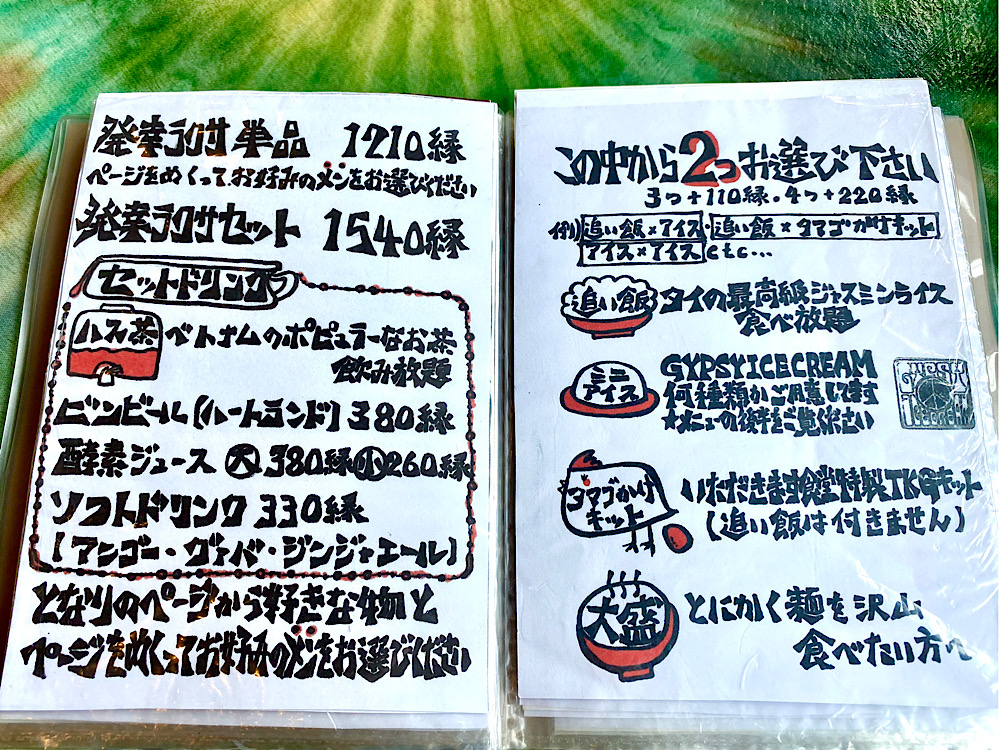 発案ラクサ単品 1210縁
ページをめくってお好みのメンをお選びください
発案ラクサセット 1540縁
セットドリンク
ハス茶 ベトナムのポピュラーなお茶
飲み放題
ビンビール(ハートランド)380縁
酵素ジュース 大380縁 小260縁
ソフトドリンク 330縁
【マンゴー・グァバ・ジンジャエール】
となりのページから好きな物と
ページをめくってお好みのメンをお選びください
この中から2つお選び下さい
3つ+110縁・4つ+220縁
例)追い飯×アイス・追い飯×タマゴかけキット
アイス×アイスetc...
追い飯 タイの最高級ジャスミンライス
食べ放題
ミニアイス GYPSY ICE CREAM
何種類かご用意してます
★メニューの後半をご覧ください
タマゴかけキット いただきます食堂特製TKGキット
(追い飯は付きません)
大盛 とにかく麺を沢山
食べたい方へ